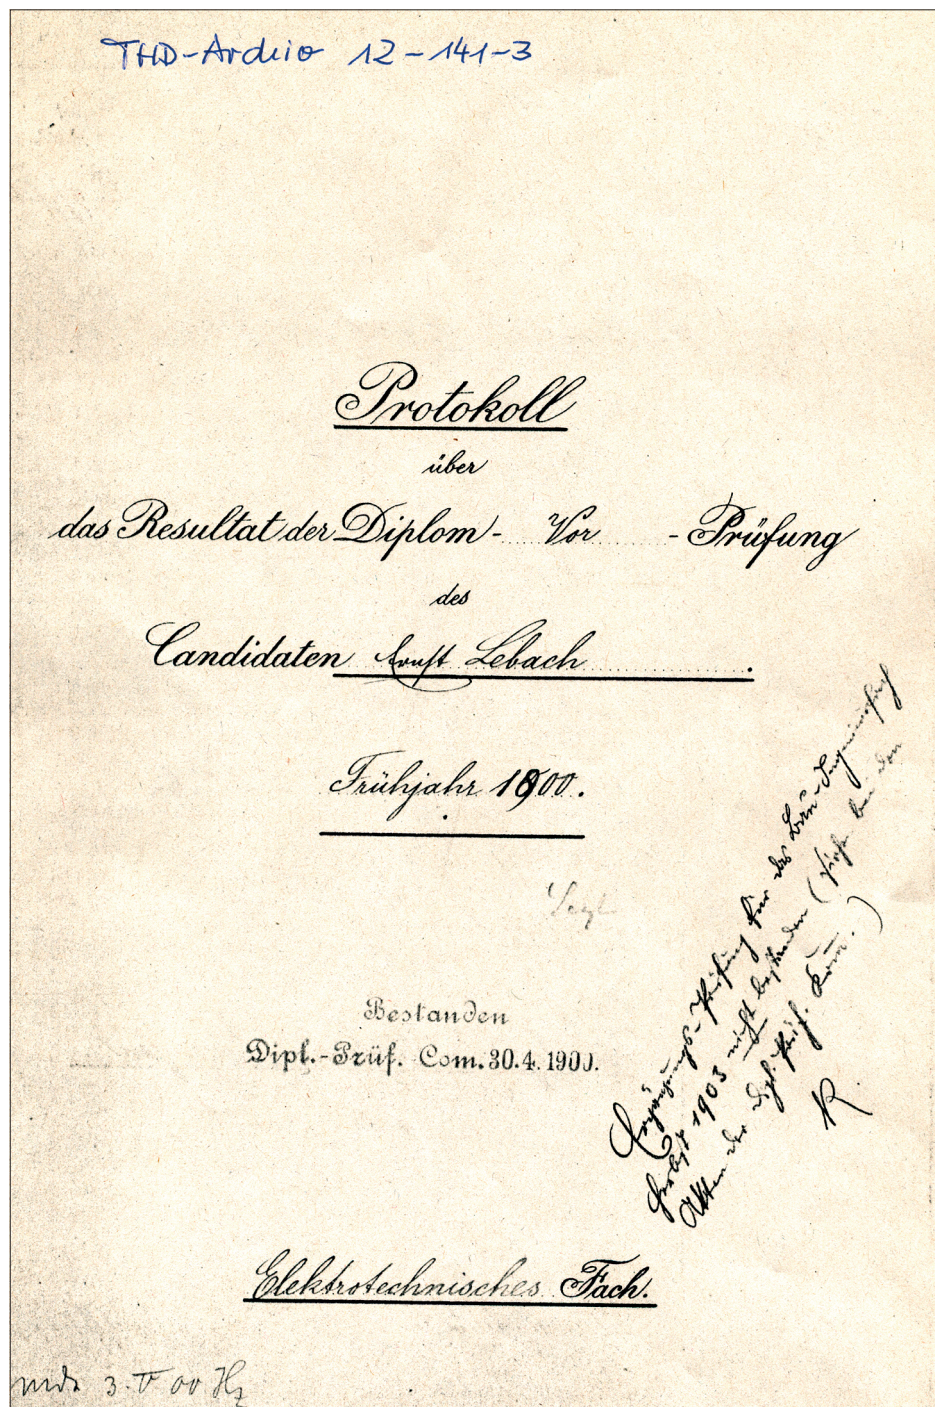 THD-Archiv 12-141-3
Protokoll
über
das Resultat der Diplom- Vor -Prüfung
des
Candidaten Ernst Lebach.
Frühjahr 1900.
Bestanden
Dipl.-Prüf. Com. 30.4.1900.
Ergänzungs-Prüfung für das Bau-Ingenieurfach
Herbst 1903 nicht bestanden (siehe bei den
Akten der Dipl. Prüf. Kom.)
R
Elektrotechnisches Fach.
3. V 00 Hz